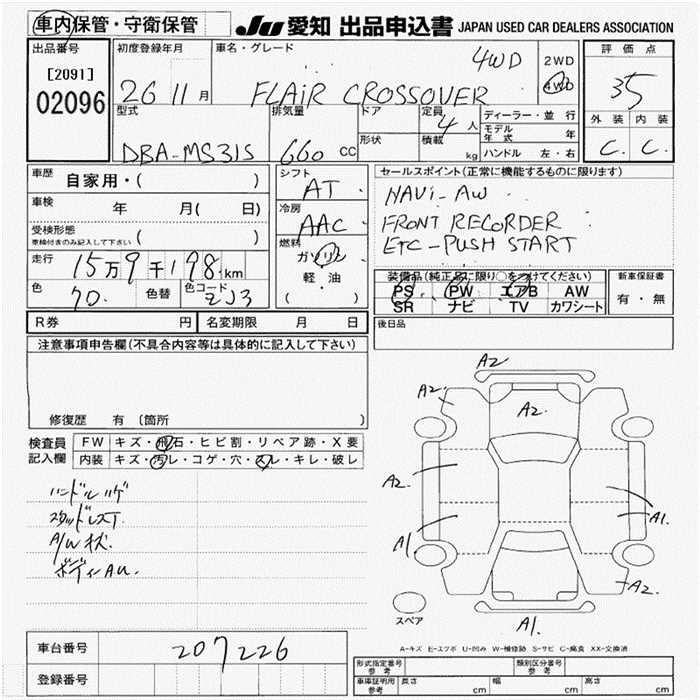 車内保管・守衛保管 JU 愛知 出品申込書 JAPAN USED CAR DEALERS ASSOCIATION
出品番号 初度登録年月 車名・グレード 4WD 2WD 4WD 評価点
[2091]
02096 26 11月 FLAiR CROSSOVER 35
型式 排気量 ドア 定員 4人 ディーラー・並行 外装 内装
モデル年式 年
形状 積載 kg ハンドル 左・右
DBA-MS31S 660 CC C. C.
車歴 自家用・( ) シフト AT セールスポイント(正常に機能するものに限ります)
車検 年 月( 日) 冷房 AAC NAVi-AW
受検形態 車検付きのみ記入して下さい ( ) FRONT RECORDER
燃料 ガソリン ETC-PUSH START
走行 15万9千198km 軽・油
( )
装備品(純正品に限り○をつけてください) 新車保証書
色 70. 色替 色コード ZJ3 PS PW エアB AW 有・無
SR ナビ TV カワシート
R券 円 名変期限 月 日 後日品
注意事項申告欄(不具合内容等は具体的に記入して下さい)
修復歴 有(箇所 )
検査員記入欄 FW キズ・飛石・ヒビ割・リペア跡・X要
内装 キズ・汚レ・コゲ・穴・スレ・キレ・破レ
ハンドルハゲ
スタッドレスT
A/W状.
ボディAU.
A2
A2
A2.
A2.
A1.
A1.
A2.
A1.
スペア
A-キズ E-エクボ U-凹み W-補修跡 S-サビ C-腐食 XX-交換済
車台番号 207226
登録番号
形式指定番号 参考 類別区分番号 参考
車庫証明用 参考 長さ cm 幅 cm 高さ cm